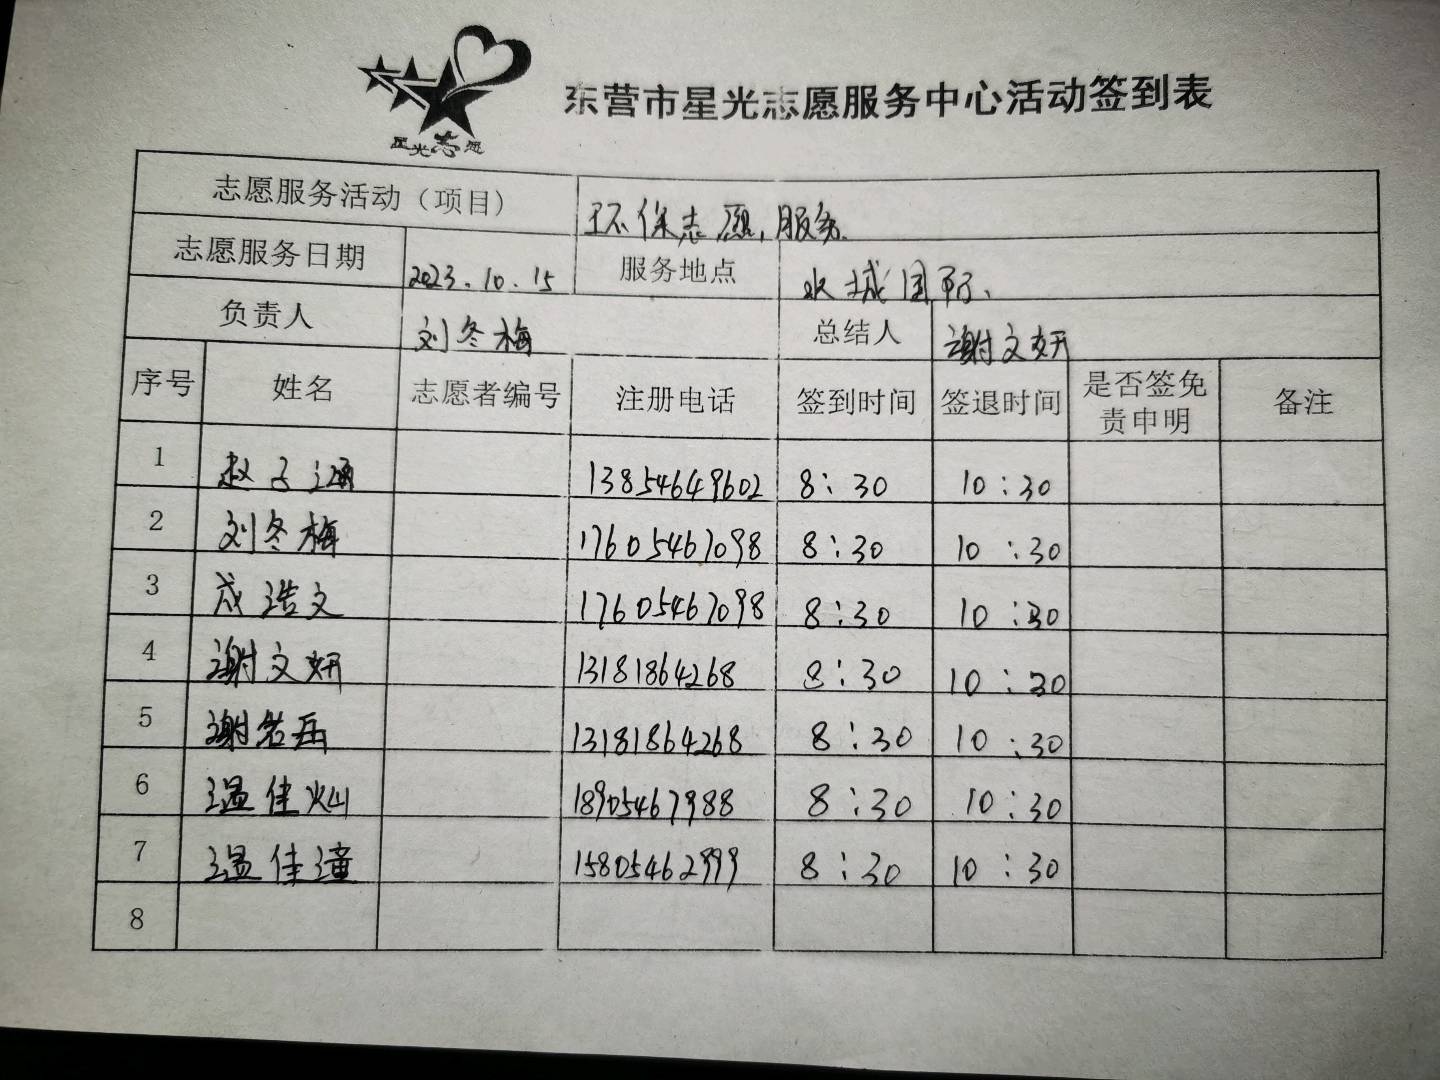 星光志愿
东营市星光志愿服务中心活动签到表
志愿服务活动（项目） 环保志愿服务
志愿服务日期 2023.10.15 服务地点 水城国际
负责人 刘冬梅 总结人 谢文妍
序号 姓名 志愿者编号 注册电话 签到时间 签退时间 是否签免责申明 备注
1 赵子涵 13854649602 8:30 10:30
2 刘冬梅 17605467098 8:30 10:30
3 成浩文 17605467098 8:30 10:30
4 谢文妍 13181864268 8:30 10:30
5 谢若岳 13181864268 8:30 10:30
6 温佳灿 18905467988 8:30 10:30
7 温佳潼 15805462999 8:30 10:30
8